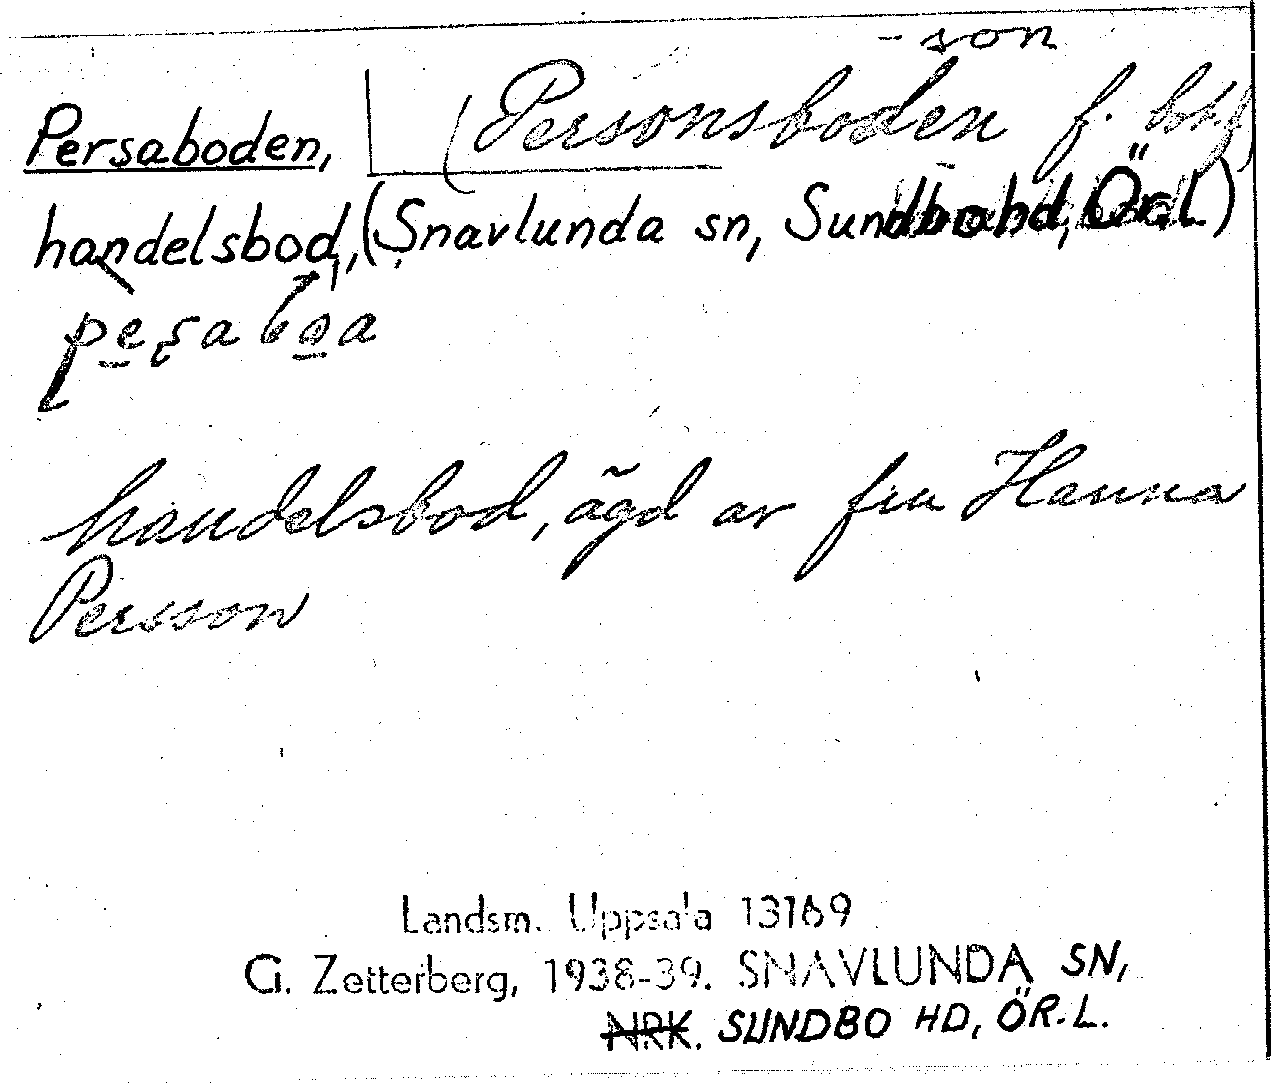 -son
Persaboden, (Personsboden f. best.)
handelsbod, (Snavlunda sn, Sundbo hd, Ör.l.)
pesa boa
handelsbod, ägd av fru Hanna
Persson
Landsm. Uppsala 13169
G. Zetterberg, 1938-39. SNAVLUNDA SN,
NRK. SUNDBO HD, ÖR.L.